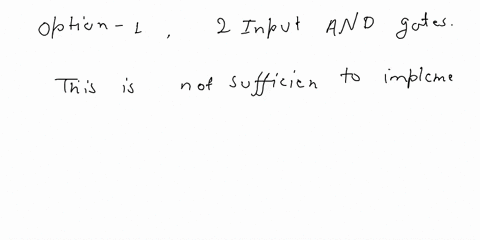 Option-1, 2 Input AND gates.
This is not sufficien to impleme